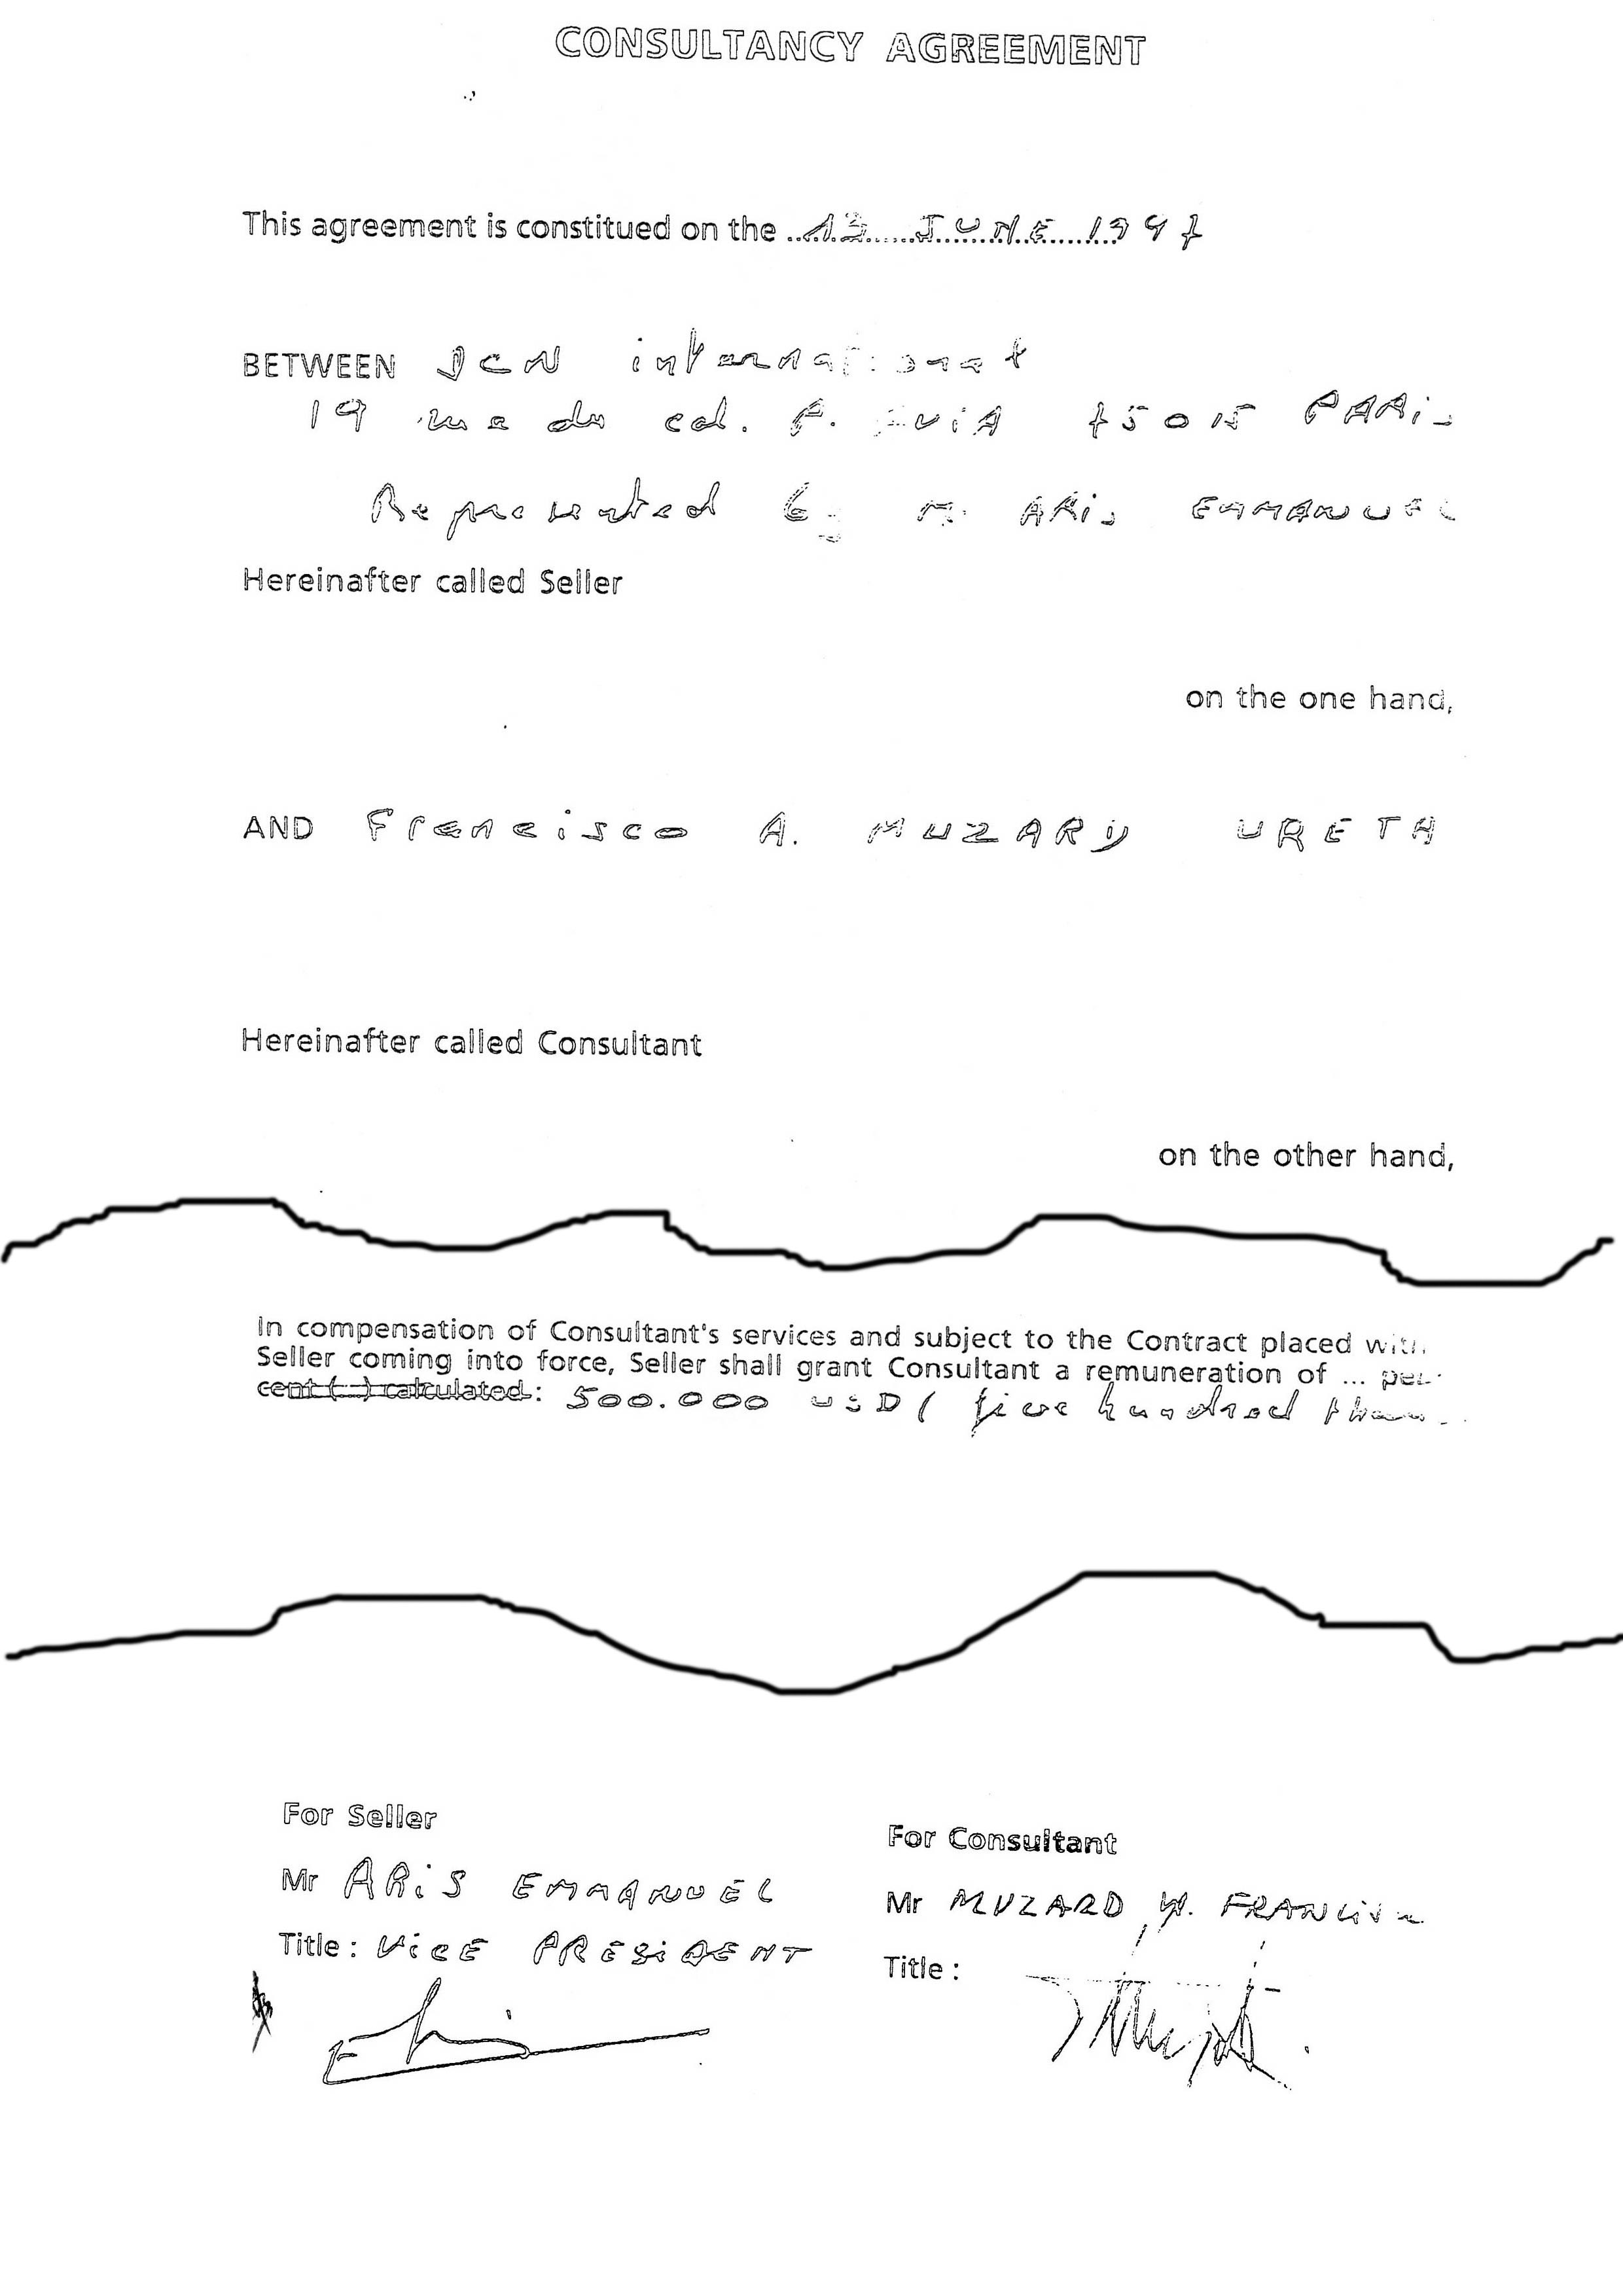 CONSULTANCY AGREEMENT
This agreement is constitued on the 13 JUNE 1997
BETWEEN DCN international
19 rue du col. P. AVIA 75015 PARIS
Represented by M. ARiS EMMANUEL
Hereinafter called Seller
on the one hand,
AND Francisco A. MUZARD URETA
Hereinafter called Consultant
on the other hand,
In compensation of Consultant's services and subject to the Contract placed with
Seller coming into force, Seller shall grant Consultant a remuneration of ... per
cent (...) calculated: 500.000 USD ( five hundred
For Seller
For Consultant
Mr ARiS EMMANUEL
Mr MUZARD
Title : ViCE PRESiDENT
Title :